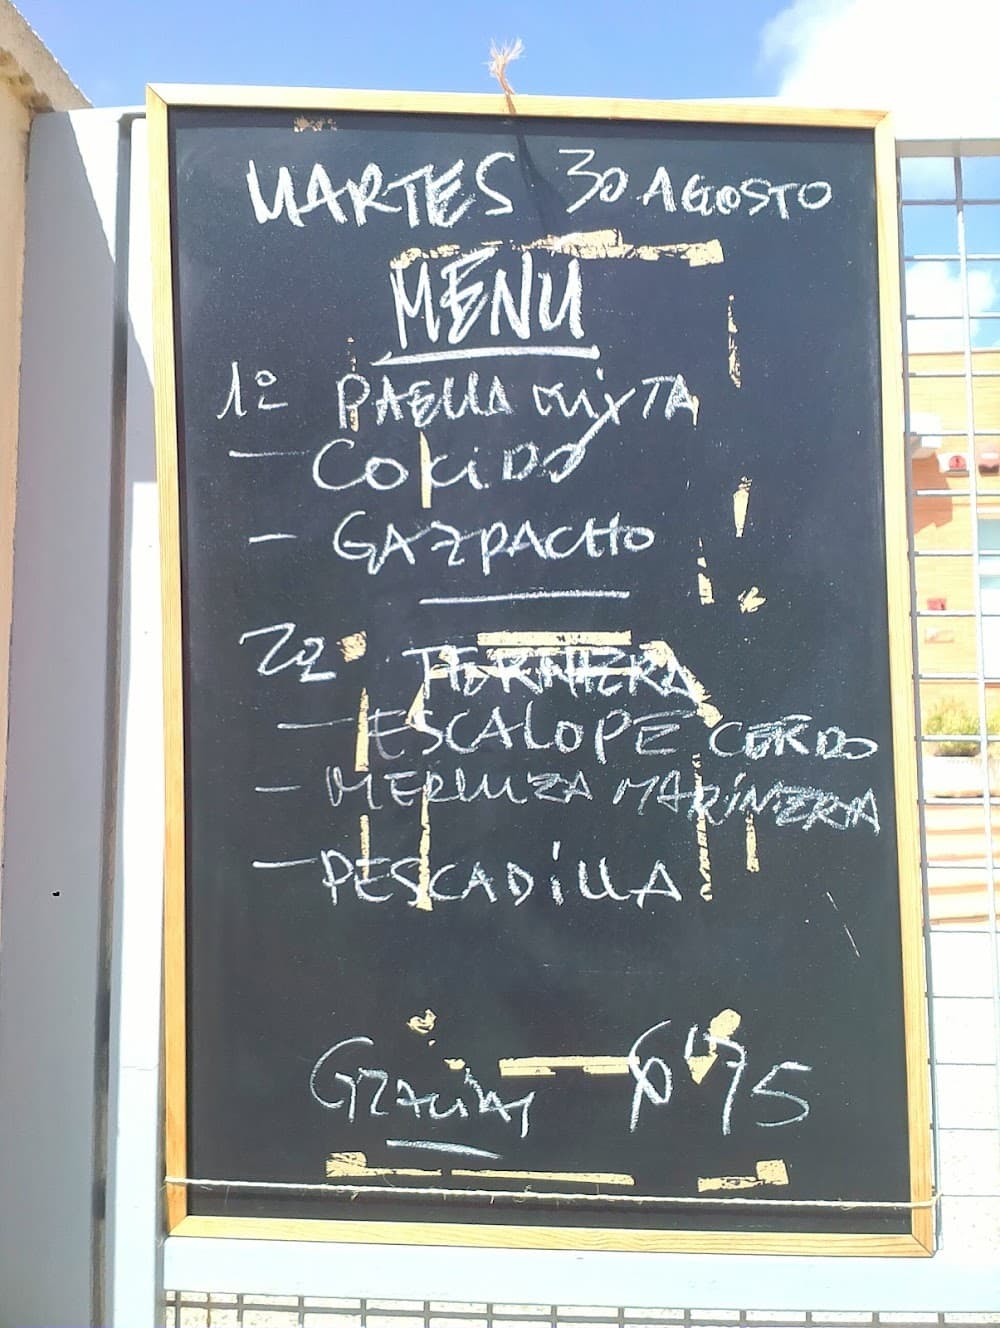 MARTES 30 AGOSTO
MENU
1º PAELLA MIXTA
- COKIDO
- GAZPACHO
2º TERNERA
- ESCALOPE CERDO
- MERLUZA MARINERA
- PESCADILLA
GRACIAS 6'75